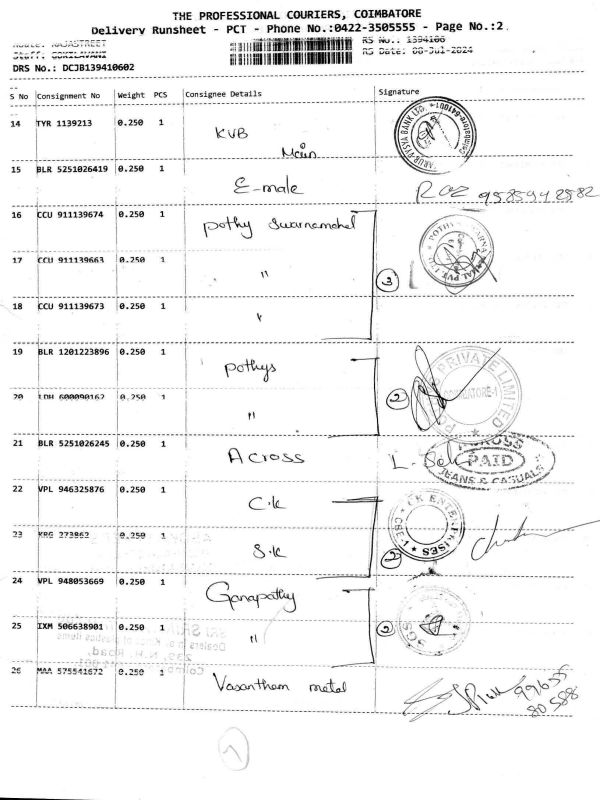 THE PROFESSIONAL COURIERS, COIMBATORE
Delivery Runsheet - PCT - Phone No.:0422-3505555 - Page No.:2
Route: RAJASTREET RS No.: 1394106
Staff: GOKILAVANI RS Date: 08-Jul-2024
DRS No.: DCJB139410602
S No Consignment No Weight PCS Consignee Details Signature
14 TYR 1139213 0.250 1 KVB Main
15 BLR 5251026419 0.250 1 E-male
16 CCU 911139674 0.250 1 pothy Swarnamahal
17 CCU 911139663 0.250 1 "
3
18 CCU 911139673 0.250 1 "
19 BLR 1201223896 0.250 1 pothys
PRIVATE LIMITED
COIMBATORE-1
20 LDH 600090162 0.250 1 "
2
21 BLR 5251026245 0.250 1 Across
ACROSS
PAID
JEANS & CASUALS
22 VPL 946325876 0.250 1 C.K
CK ENTERPRISES
CBE-1
23 KRG 273862 0.250 1 S.K
2
24 VPL 948053669 0.250 1 Ganapathy
SGS
25 IXM 506638901 0.250 1 "
2
26 MAA 575541672 0.250 1 Vasantham metal
99655
80588